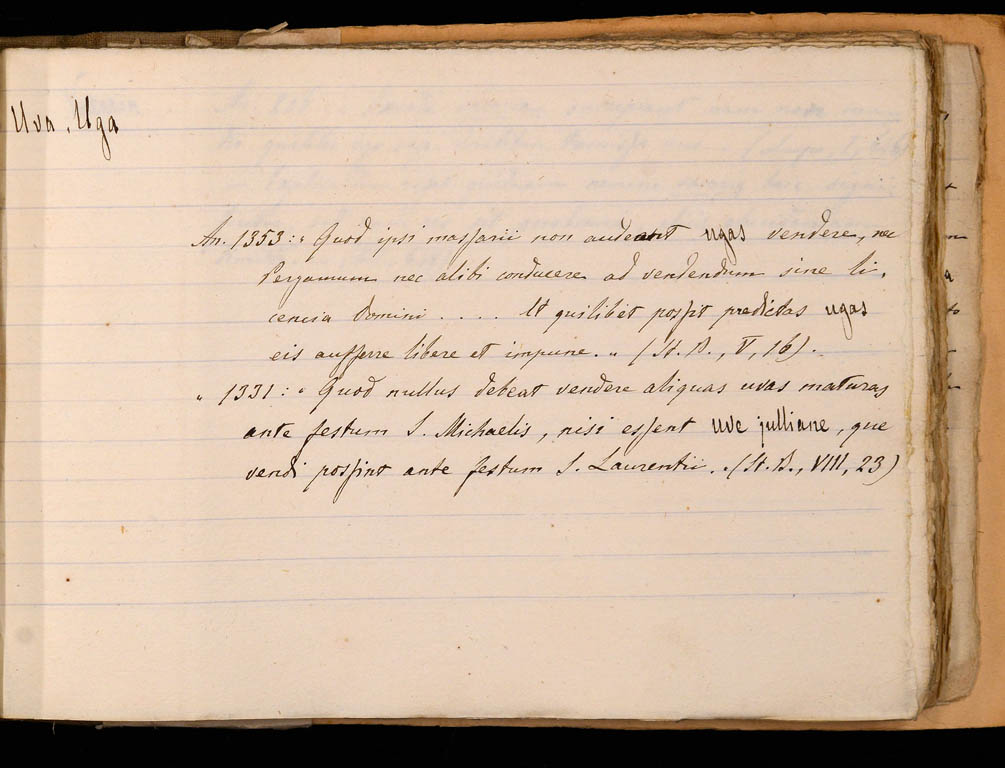 Uva, Uga
An. 1353: " Quod ipsi massarii non audeant ugas vendere, nec
Pergamum nec alibi conducere ad vendendum sine li-
cencia Domini . . . . Et quilibet possit predictas ugas
eis aufferre libere et impune. " (St. B., V, 16).
" 1331: " Quod nullus debeat vendere aliquas uvas maturas
ante festum S. Michaelis, nisi essent uve julliane, que
vendi possint ante festum S. Laurentii. " (St. B., VIII, 23)